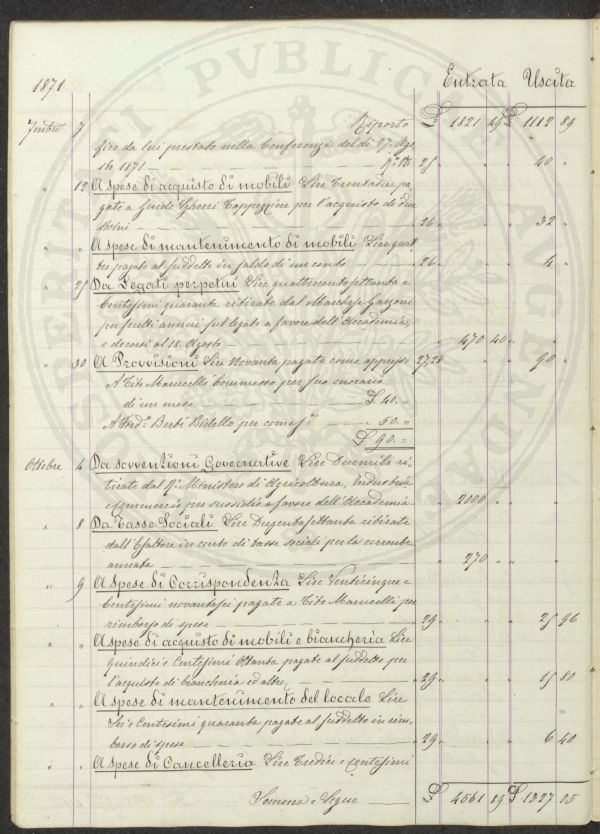 1871
Entrata Uscita
Riporto £ 1821 49 £ 1112 89
7mbre 7 fico da lui prestato nella Conferenza del dì 27 Ago
sto 1871 — No. 25 " 40 "
" 12 A Spese di acquisto di mobili Lire Trentadue pa
gate a Guido Tappezziere per l'acquisto di due
— 26 " 32 "
" " A Spese di mantenimento di mobili Lire quat
tro pagate al suddetto in saldo di un conto — 26 " 4 "
" 25 Da Legati perpetui Lire quattrocentosettanta e
Centesimi quaranta ritirate dal Marchese Garzoni
per frutti annui sul legato a favore dell'Accademia,
e decorsi al 18. Agosto — " 470 40 " "
" 30 A Provvisioni Lire Novanta pagate come appresso 27,28 " " 90 "
A Tito Marucelli Commesso per suo onorario
di un mese — £ 40. =
A Ferd.o Berti Bidello per come s.a — " 50. =
£ 90. =
Ottobre 4 Da Sovventioni Governative Lire Duemila ri
tirate dal R. Ministero di Agricoltura, Industria
e Commercio per sussidio a favore dell'Accademia " 2000 " " "
" 8 Da Tasse Sociali Lire Dugentosettanta ritirate
dall'Esattore in conto di tasse sociali per la corrente
annata — " 270 " " "
" 9 A Spese di Corrispondenza Lire Venticinque e
Centesimi novantasei pagate a Tito Marucelli per
rimborso di spese — 29 " " 25 96
" " A Spese di acquisto di mobili e biancheria Lire
Quindici e Centesimi Ottanta pagate al suddetto per
l'acquisto di biancheria ed altro, — 29 " " 15 80
" " A Spese di mantenimento del locale Lire
Sei e Centesimi quaranta pagate al suddetto in rim
borso di spese — 29 " " 6 40
" " A Spese di Cancelleria Lire Tredici e Centesimi
Somma e Segue — £ 4561 89 £ 1327 05
PUBLICA